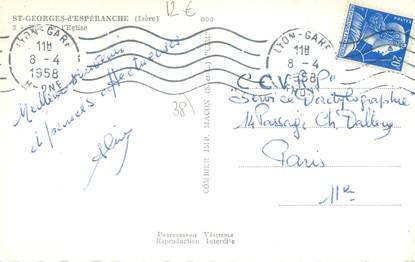 ST-GEORGES-d'ESPÉRANCHE (Isère)
l'Eglise
12 €
LYON-GARE
11H
8-4
1958
RHONE
LYON-GARE
11H
8-4
1958
20F
Meilleur souvenir
et pensées affectueuses
38
COMBIER IMP. MACON
C.C.V.R.P.
"Service Dactylographie"
14 Passage Ch. Dallery
Paris
11e
PHOTOGRAPHIE VÉRITABLE
Reproduction Interdite